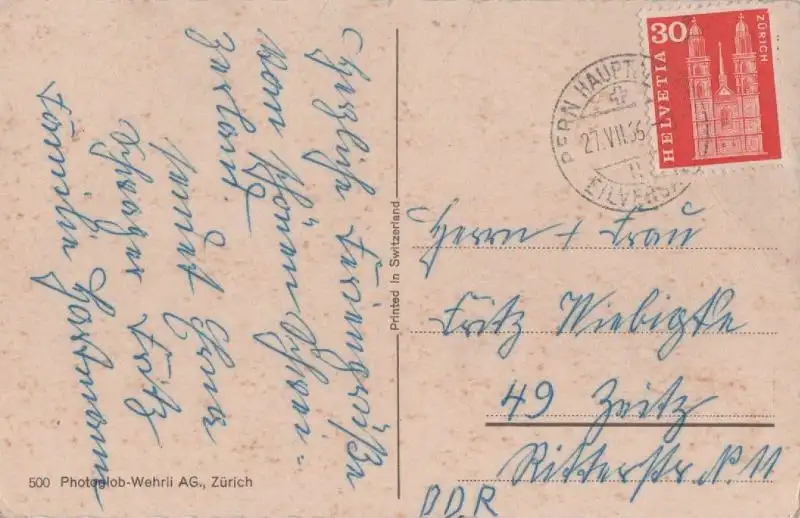 Herzliche Feriengrüße
vom schönen Schwei-
zerland
sendet Euer
Schwager Fritz
Familie Hartmann
500 Photoglob-Wehrli AG., Zürich
Printed in Switzerland
30
HELVETIA
ZÜRICH
BERN HAUPT
27.VII.66
EILVERSA
Herrn + Frau
Fritz Wiebigke
49 Zeitz
Ritterstr. N 11
DDR